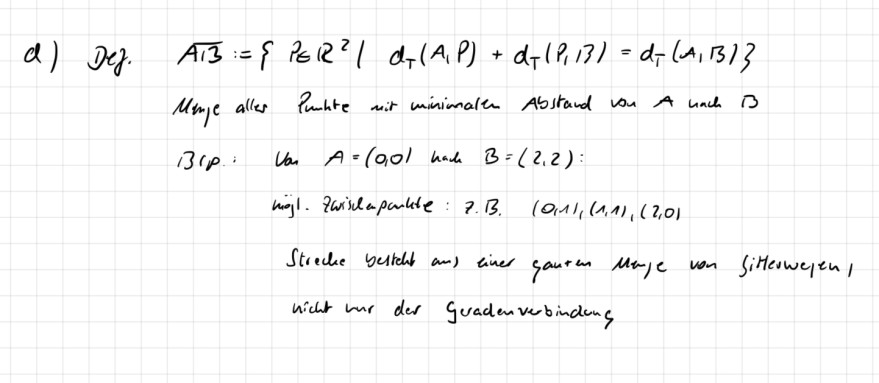 d) Def. AB := { P∈ℝ² | d_T(A,P) + d_T(P,B) = d_T(A,B) }
Menge aller Punkte mit minimalen Abstand von A nach B
Bsp.: Von A = (0,0) nach B = (2,2):
mögl. Zwischenpunkte: z.B. (0,1), (1,1), (2,0)
Strecke besteht aus einer ganzen Menge von Gitterwegen,
nicht nur der Geradenverbindung